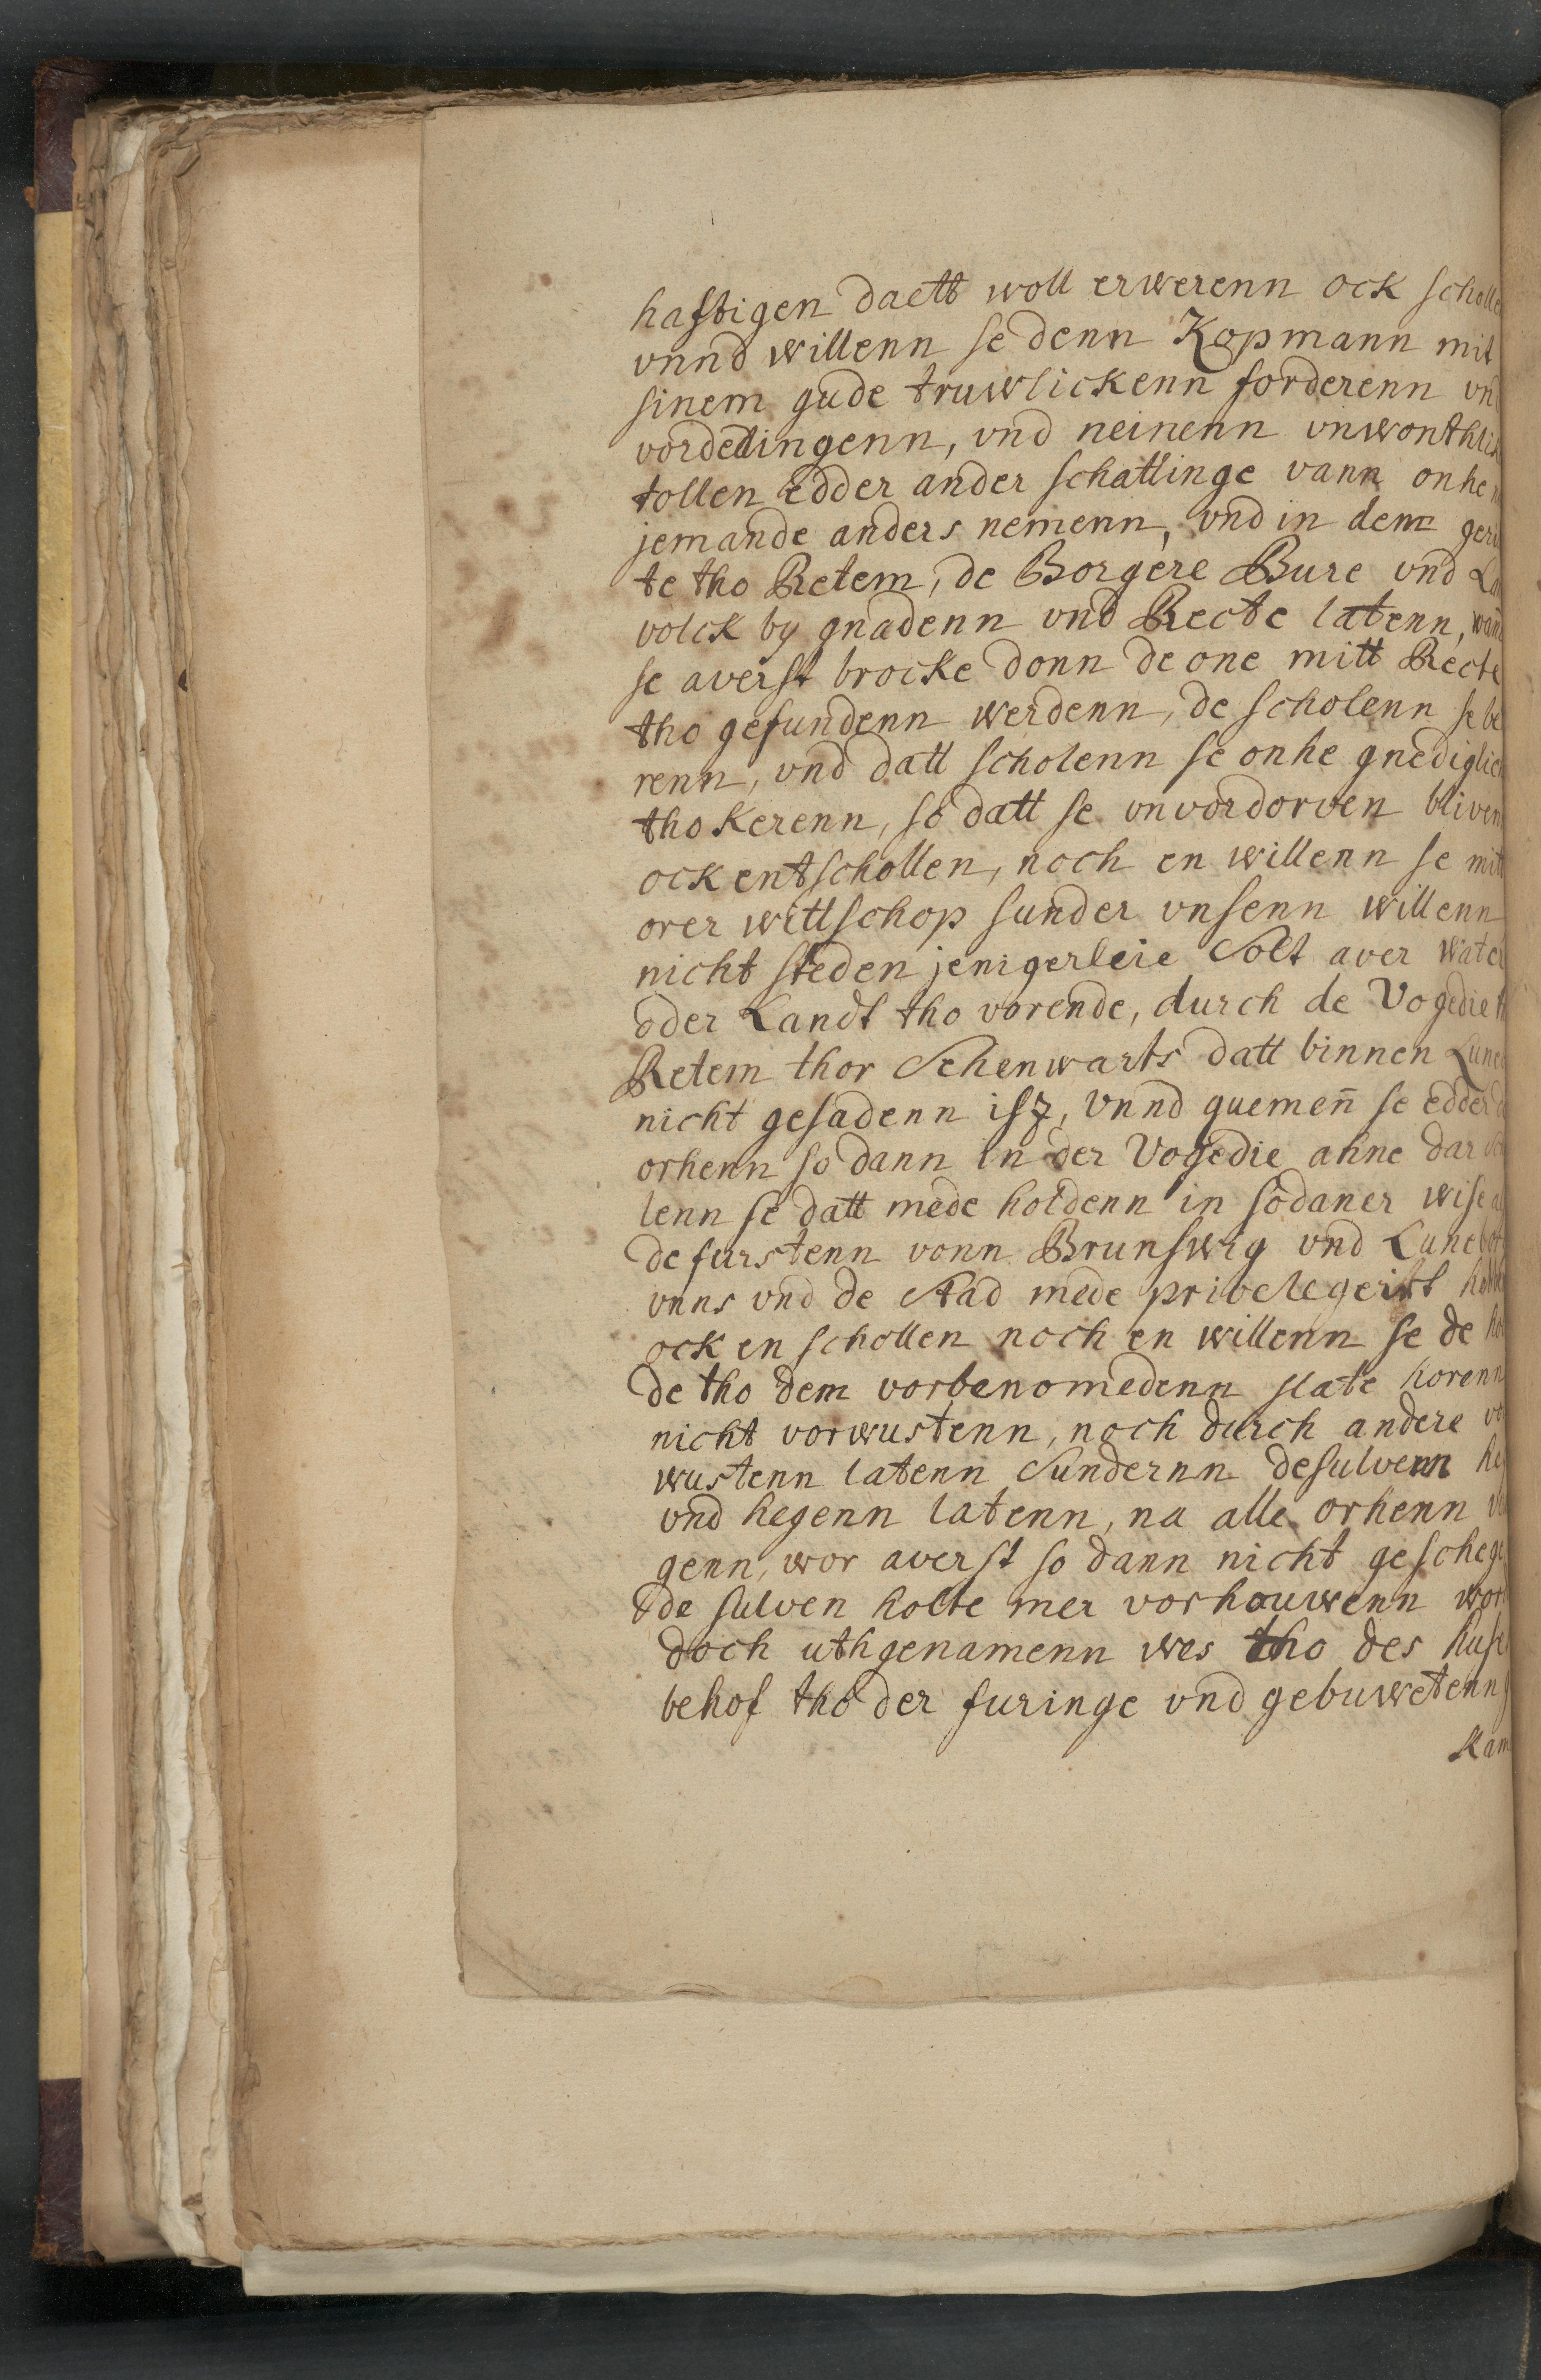 hastigen daett woll erwerenn ock scholle
vnnd willenn se denn Kopmann mit
sinem gude truwlickenn forderenn vnd
vordedingenn, vnd neinenn vnwonthlick
tollen edder ander schattinge vann onhen
jemande anders nemenn, vnd in dem geric
te tho Retem, de Borgere Bure vnd Lan
volck by gnadenn vnd Recte latenn, wand
se averst brocke donn de one mitt Recte
tho gefundenn werdenn, de scholenn se be
renn, vnd datt scholenn se onhe gnediglich
tho kerenn, so datt se vnvordorven bliven
ock entschollen, noch en willenn se mitt
orer wettschop sunder vnsenn willenn
nicht steden jenigerleie Solt aver water
oder Landt tho vorende, durch de Vogedie th
Retem thor Schenwarts datt binnen Lune
nicht gesadenn isz, vnnd quemen̄ se edder d
orhenn so dann in der Vogedie ahne dar sch
lenn se datt mede holdenn in sodaner wise al
de furstenn vonn Brunswig vnd Lunebor
vnns vnd de Stad mede privelegeirt hebb
ock en schollen noch en willenn se de hol
de tho dem vorbenomedenn slate horenn
nicht vorwustenn, noch durch andere vor
wustenn latenn Sundernn desulvenn he
vnd hegenn latenn, na alle orhenn vor
genn, wor averst so dann nicht geschege
de sulven holte mer vorhouwenn word
doch uthgenamenn wes tho des huse
behof tho der furinge vnd gebuwetenn
Kam